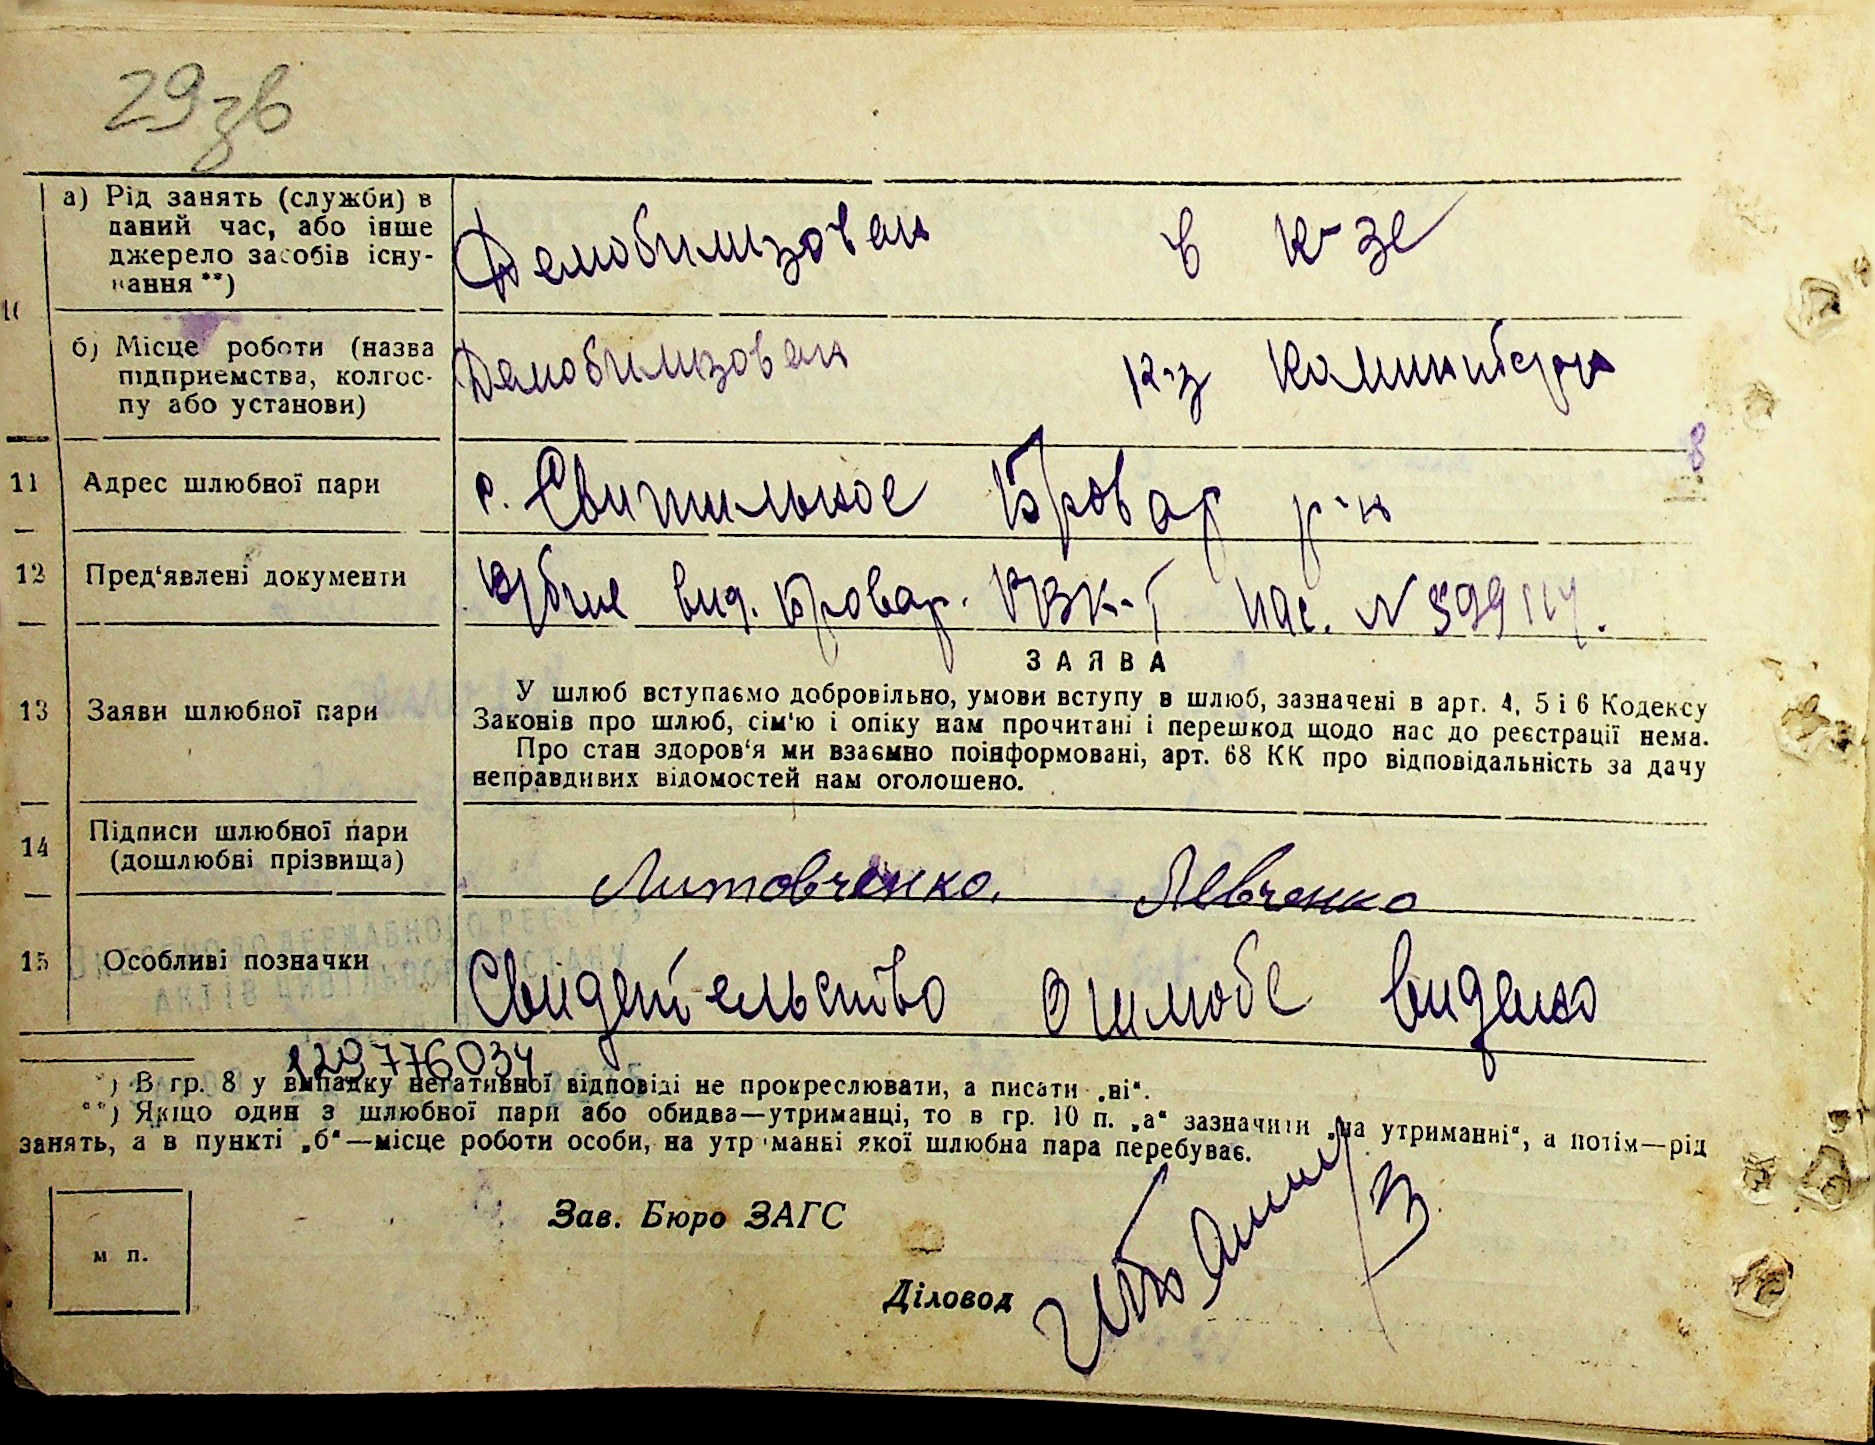 29зв
а) Рід занять (служби) в
даний час, або інше
джерело засобів існу-
вання **)
Демобилизован в к-зе
10
б) Місце роботи (назва
підприємства, колгос-
пу або установи)
Демобилизован к-з Коминтерна
11 Адрес шлюбної пари
с. Свитильное Бровар р-н
12 Пред'явлені документи
вид. Бровар. РВК-т пас. N 599114.
ЗАЯВА
13 Заяви шлюбної пари
У шлюб вступаємо добровільно, умови вступу в шлюб, зазначені в арт. 4, 5 і 6 Кодексу
Законів про шлюб, сім'ю і опіку нам прочитані і перешкод щодо нас до реєстрації нема.
Про стан здоров'я ми взаємно поінформовані, арт. 68 КК про відповідальність за дачу
неправдивих відомостей нам оголошено.
14 Підписи шлюбної пари
(дошлюбні прізвища)
Литовченко. Левченко
15 Особливі позначки
Свидетельство о шлюбе видано
129776034
*) В гр. 8 у випадку негативної відповіді не прокреслювати, а писати „ні“.
**) Якщо один з шлюбної пари або обидва—утриманці, то в гр. 10 п. „а“ зазначити „на утриманні“, а потім—рід
занять, а в пункті „б“—місце роботи особи, на утриманні якої шлюбна пара перебуває.
м п.
Зав. Бюро ЗАГС
Діловод